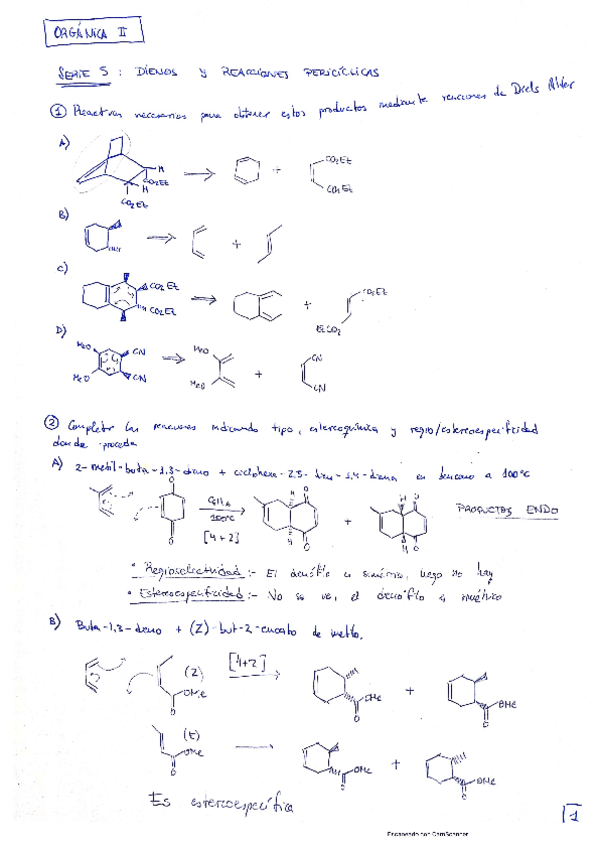 ORGÁNICA II
SERIE 5 : DIENOS Y REACCIONES PERICÍCLICAS
① Reactivos necesarios para obtener estos productos mediante reacciones de Diels Alder
A)
H
CO2Et
H
CO2Et
+
CO2Et
CO2Et
B)
+
C)
CO2Et
CO2Et
+
CO2Et
EtCO2
D)
MeO
CN
MeO
CN
MeO
MeO
+
CN
CN
② Completar las reacciones indicando tipo, estereoquímica y regio/estereoespecificidad
donde proceda
A) 2-metil-buta-1,3-dieno + ciclohexa-2,5-dien-1,4-diona en benceno a 100ºC
+
O
O
C6H6
100ºC
[4+2]
H
H
O
O
+
H
H
O
O
PRODUCTOS ENDO
• Regioselectividad :- El dienófilo es simétrico, luego no hay
• Estereoespecificidad :- No se ve, el dienófilo es simétrico
B) Buta-1,3-dieno + (Z)-but-2-enoato de metilo.
(Z)
OMe
O
[4+2]
OMe
O
+
OMe
O
(E)
OMe
O
OMe
O
+
OMe
O
Es estereoespecífica
1
Escaneado con CamScanner